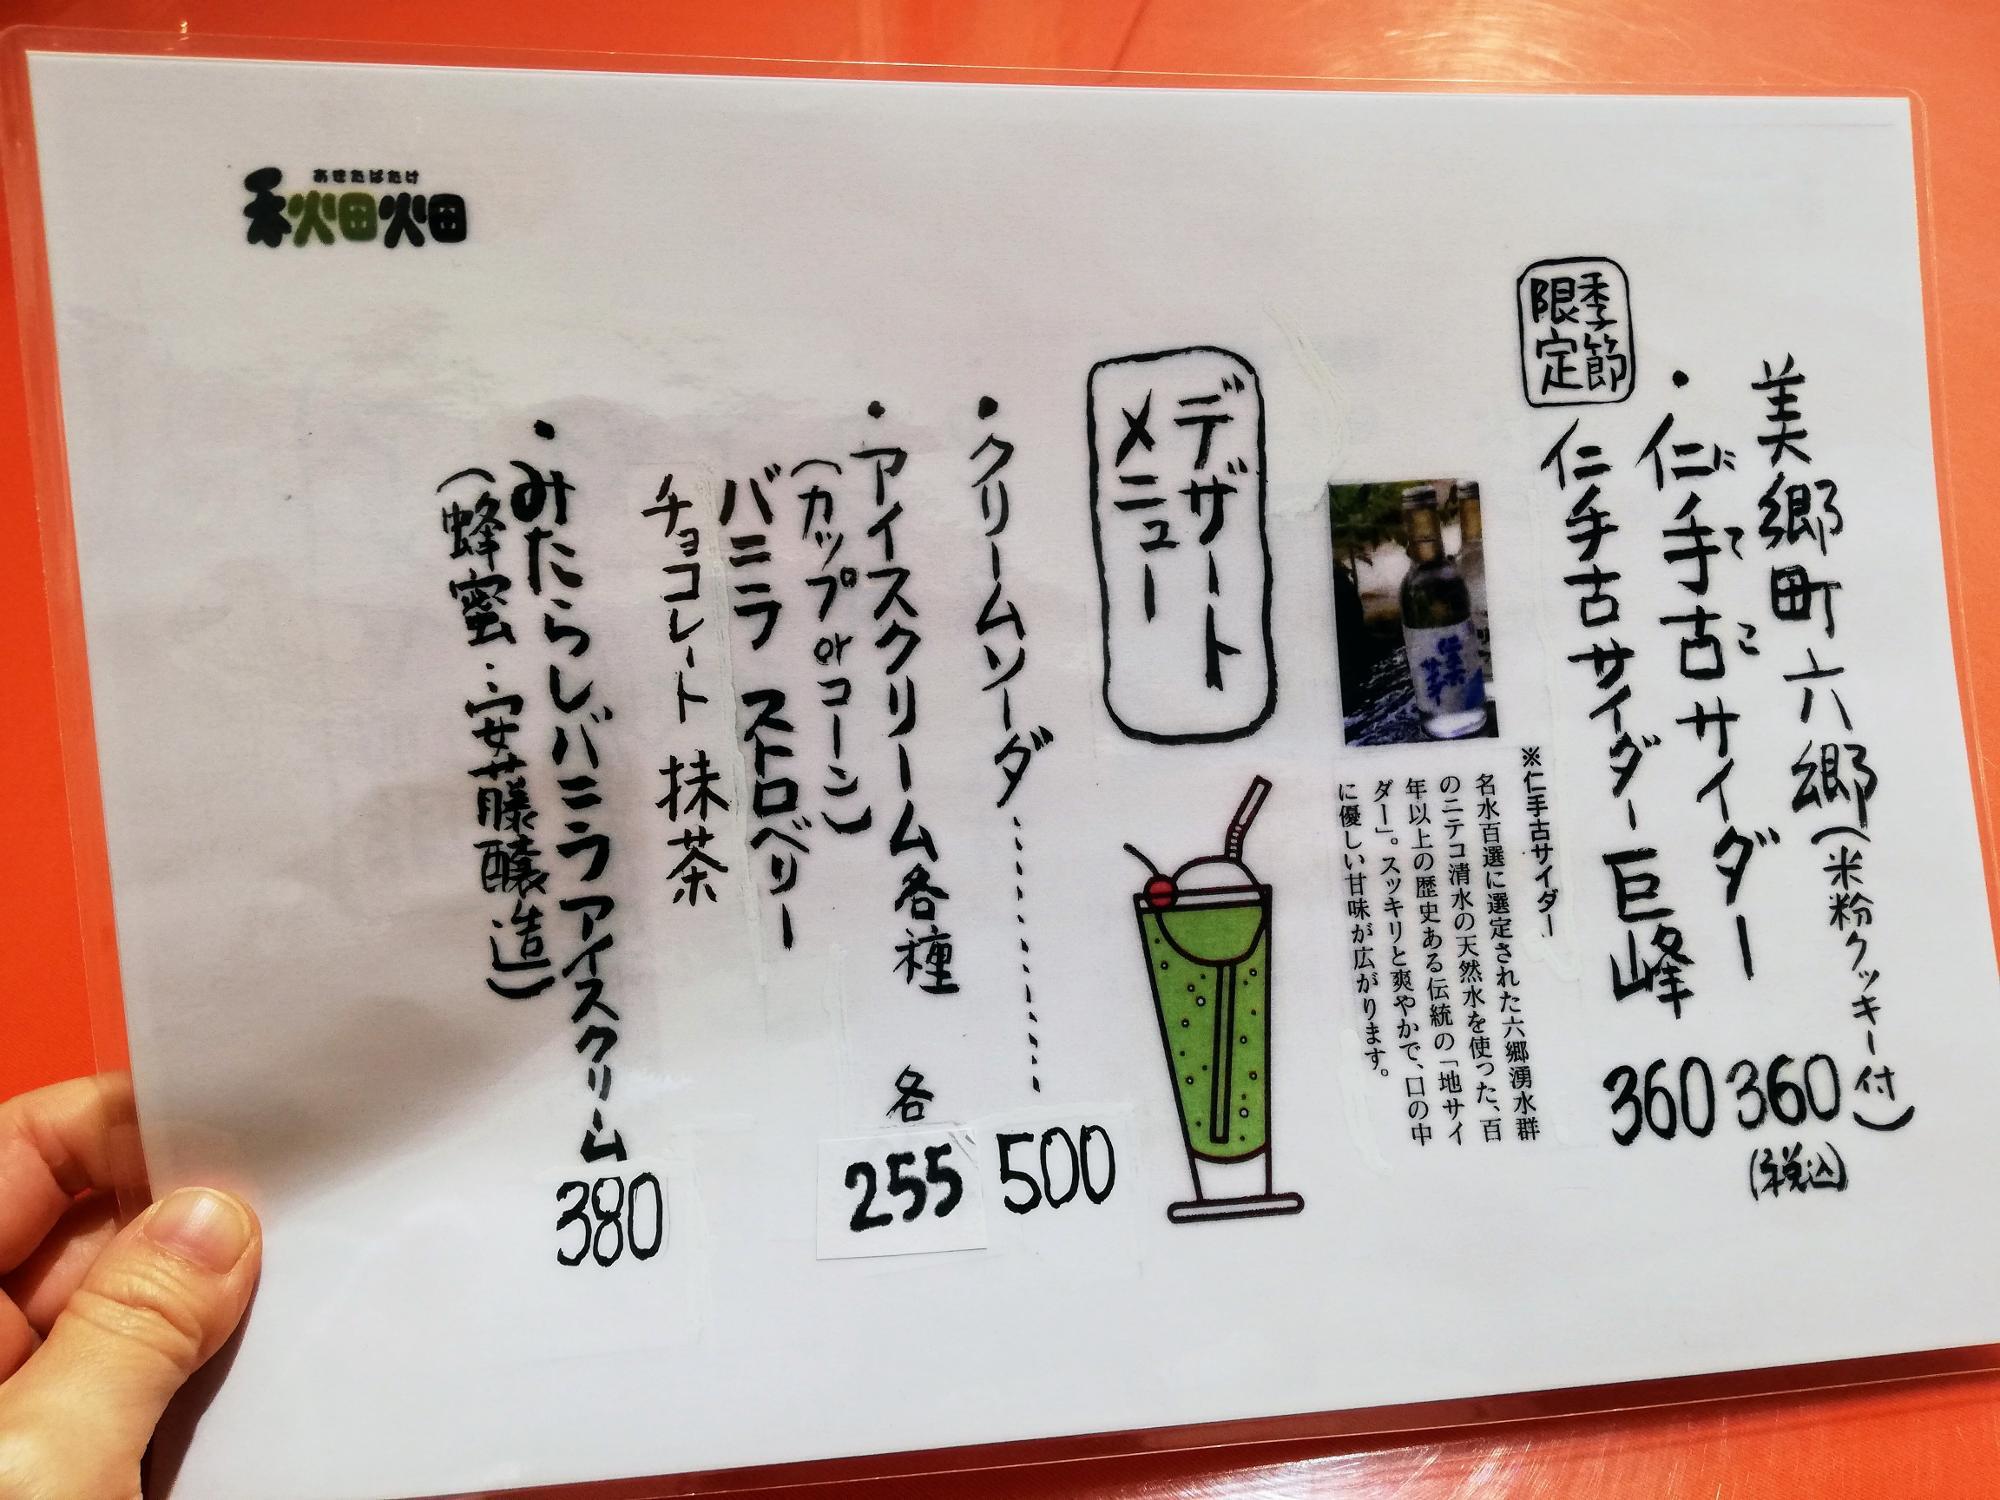 美郷町六郷(米粉クッキー付)
・仁手古サイダー 360(税込)
にてこ
季節限定
仁手古サイダー巨峰 360
※仁手古サイダー
名水百選に選定された六郷湧水群
のニテコ清水の天然水を使った、百
年以上の歴史ある伝統の「地サイ
ダー」。スッキリと爽やかで、口の中
に優しい甘味が広がります。
仁手古
サイダー
デザート
メニュー
・クリームソーダ………500
・アイスクリーム各種 各255
(カップorコーン)
バニラ ストロベリー
チョコレート 抹茶
・みたらしバニラアイスクリーム 380
(蜂蜜・安藤醸造)
あきたばたけ
秋田畑